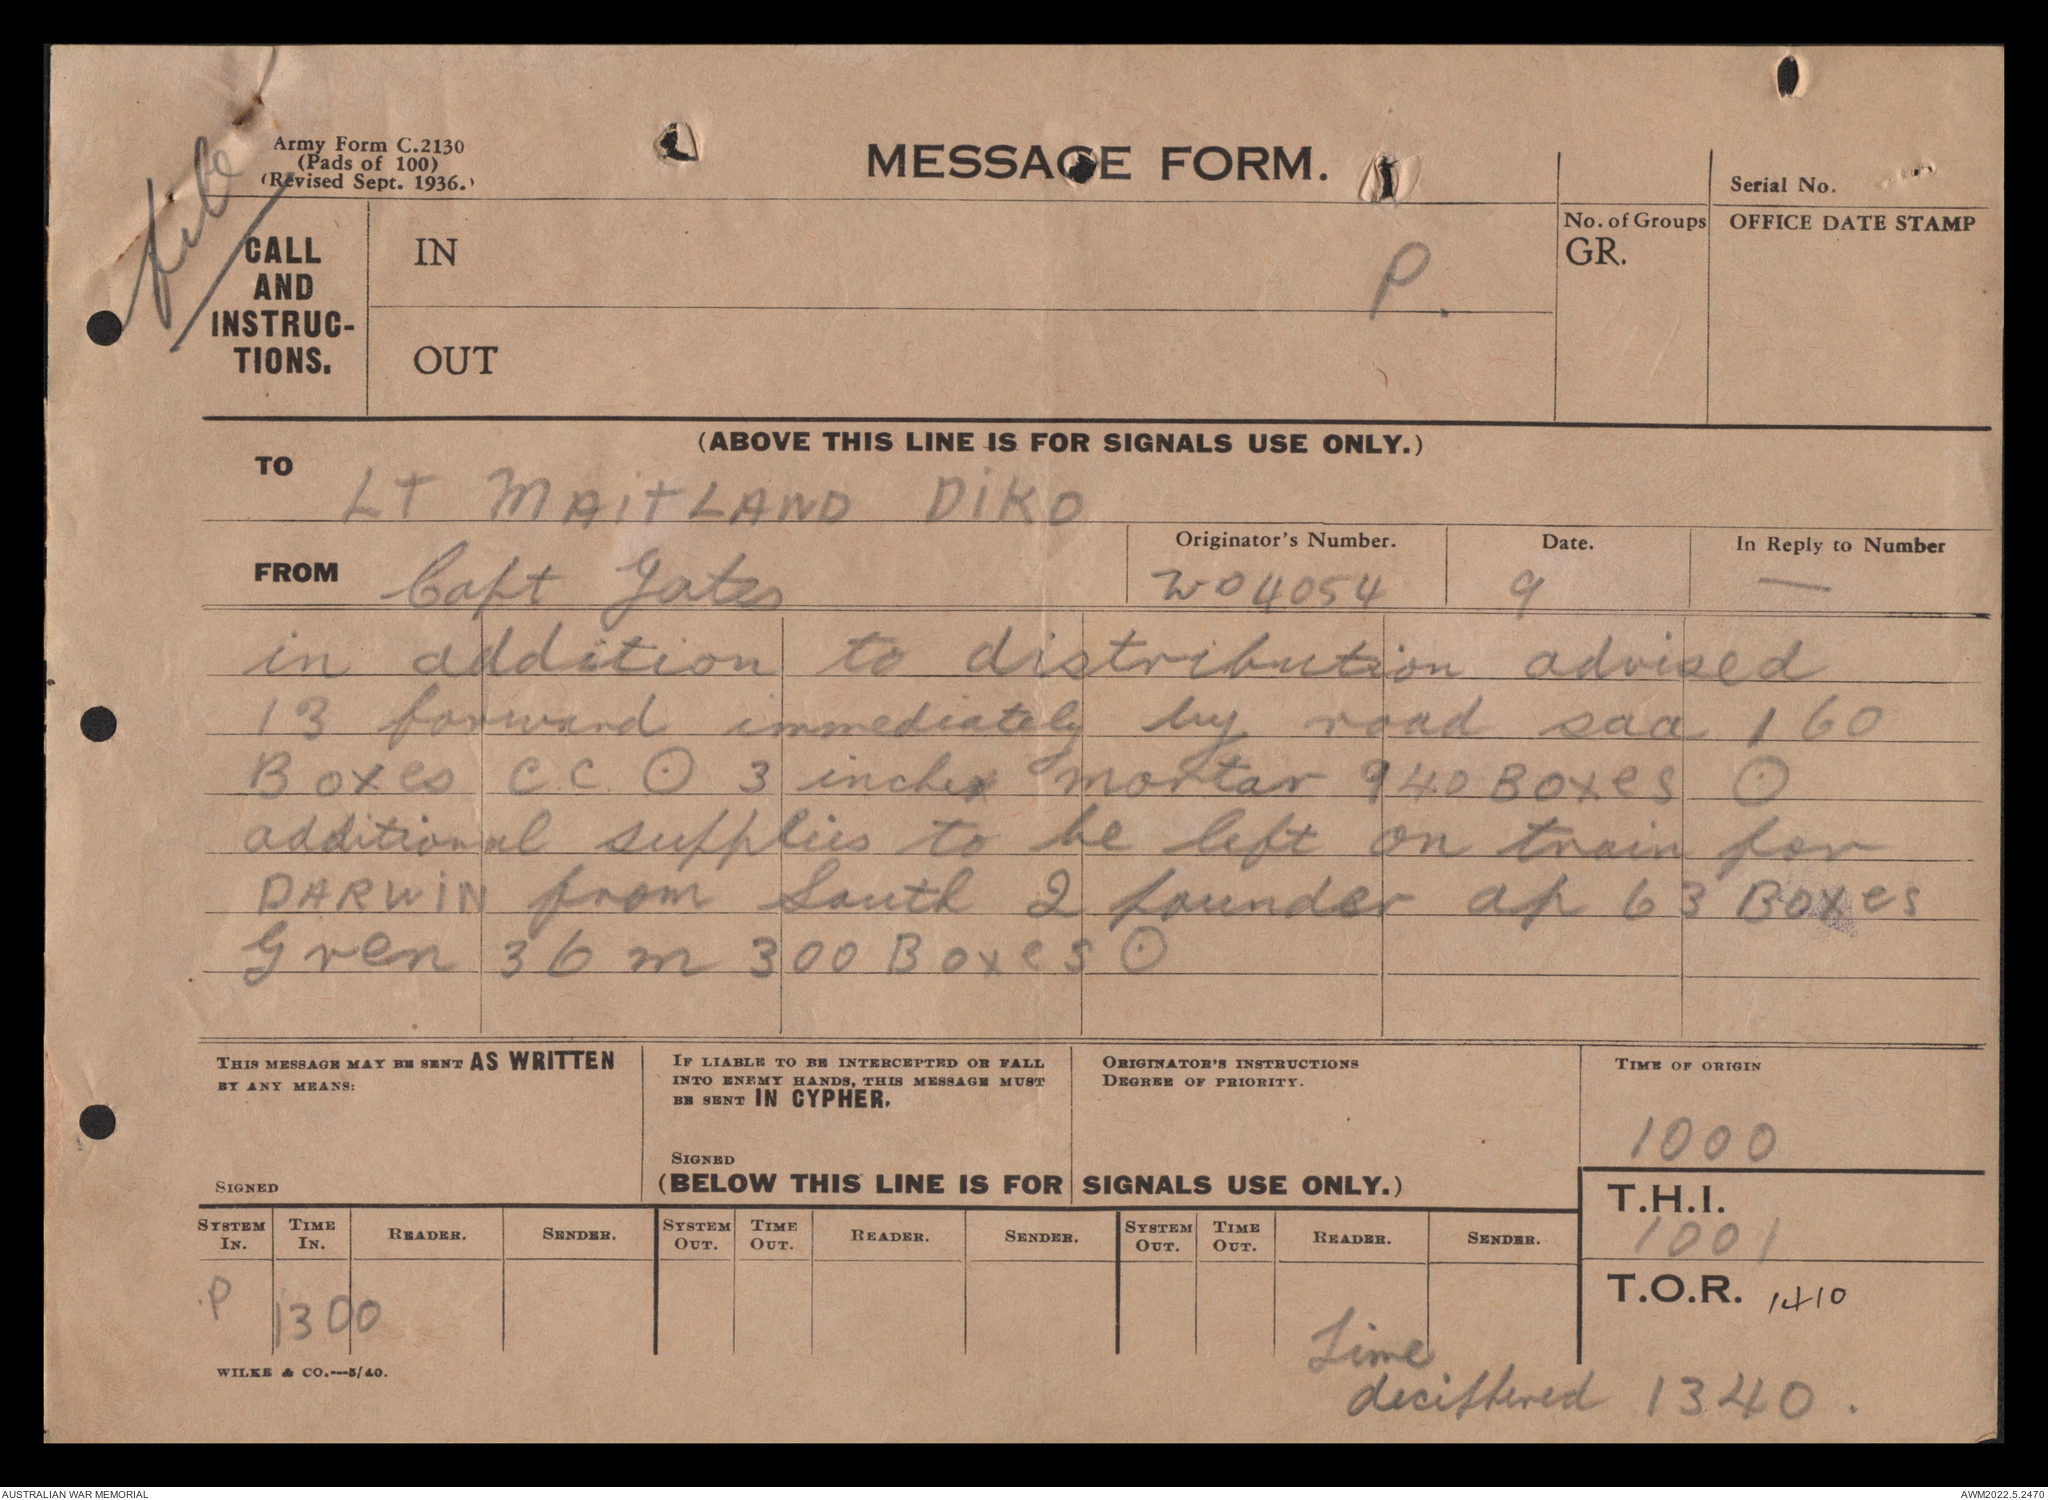 file
Army Form C.2130
(Pads of 100)
(Revised Sept. 1936.)
MESSAGE FORM.
Serial No.
CALL
AND
INSTRUC-
TIONS.
IN
P.
No. of Groups
GR.
OFFICE DATE STAMP
OUT
(ABOVE THIS LINE IS FOR SIGNALS USE ONLY.)
TO
LT MAITLAND DIKO
FROM
Capt Gates
Originator's Number.
WO4054
Date.
9
In Reply to Number
—
in addition to distribution advised
13 forward immediately by road saa 160
Boxes C.C. ⊙ 3 inchex mortar 940 Boxes ⊙
additional supplies to be left on train for
DARWIN from South 2 pounder ap 63 Boxes
Gren 36 m 300 Boxes ⊙
THIS MESSAGE MAY BE SENT AS WRITTEN
BY ANY MEANS:
SIGNED
IF LIABLE TO BE INTERCEPTED OR FALL
INTO ENEMY HANDS, THIS MESSAGE MUST
BE SENT IN CYPHER.
SIGNED
ORIGINATOR'S INSTRUCTIONS
DEGREE OF PRIORITY.
TIME OF ORIGIN
1000
(BELOW THIS LINE IS FOR SIGNALS USE ONLY.)
T.H.I.
1001
SYSTEM IN. TIME IN. READER. SENDER. SYSTEM OUT. TIME OUT. READER. SENDER. SYSTEM OUT. TIME OUT. READER. SENDER.
P 1300
T.O.R. 1410
Time
decifhered 1340.
WILKE & CO.—5/40.
AUSTRALIAN WAR MEMORIAL
AWM2022.5.2470